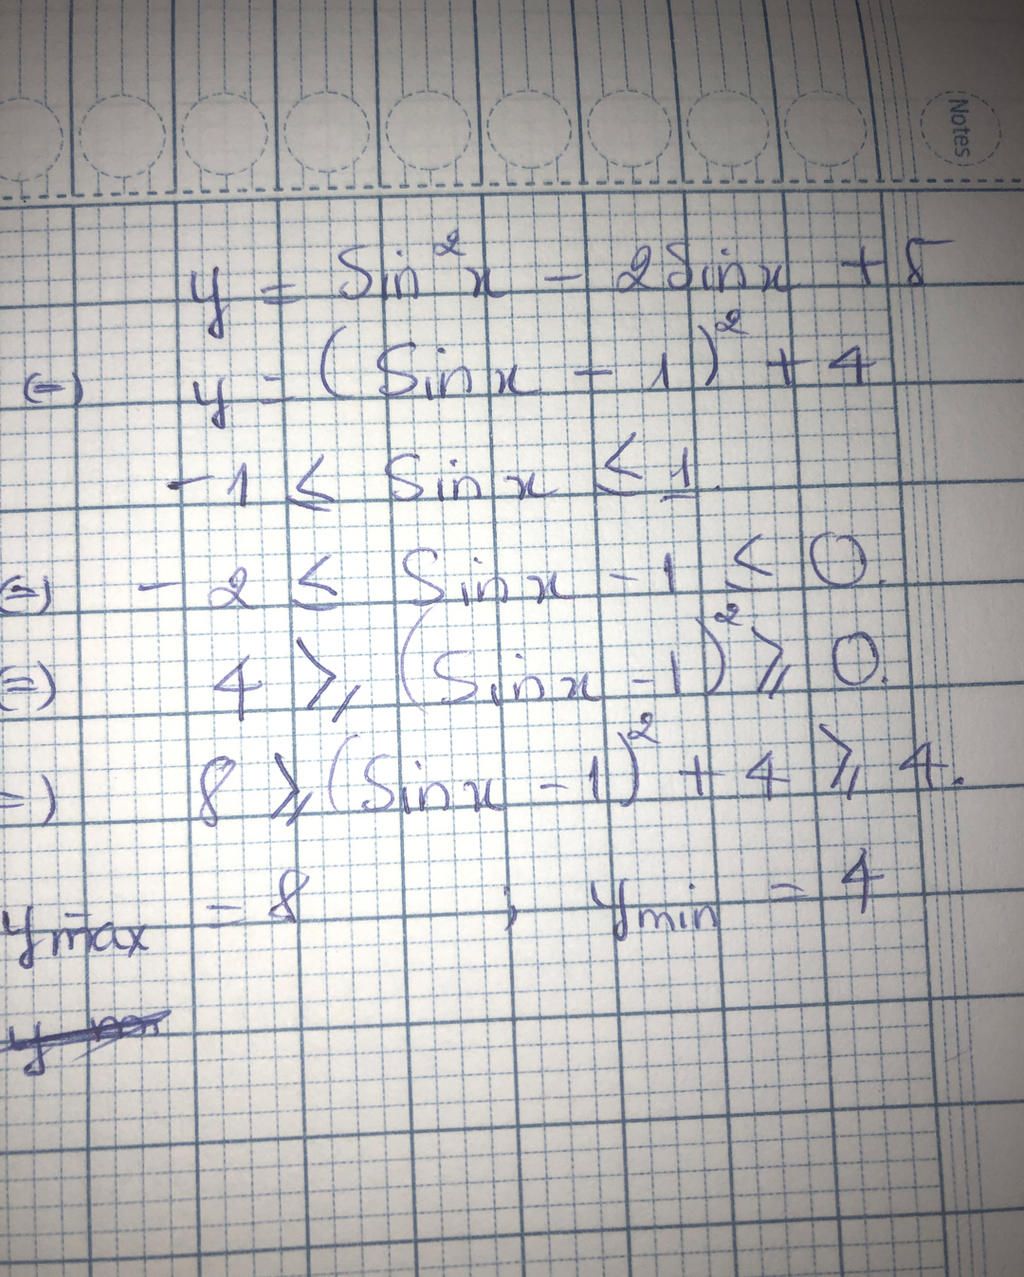 Notes
y = Sin²x - 2Sinx + 5
(=) y = (Sinx - 1)² + 4
-1 ≤ Sinx ≤ 1.
(=) -2 ≤ Sinx - 1 ≤ 0.
(=) 4 ⩾ (Sinx - 1)² ⩾ 0.
=) 8 ⩾ (Sinx - 1)² + 4 ⩾ 4.
ymax = 8 ; ymin = 4